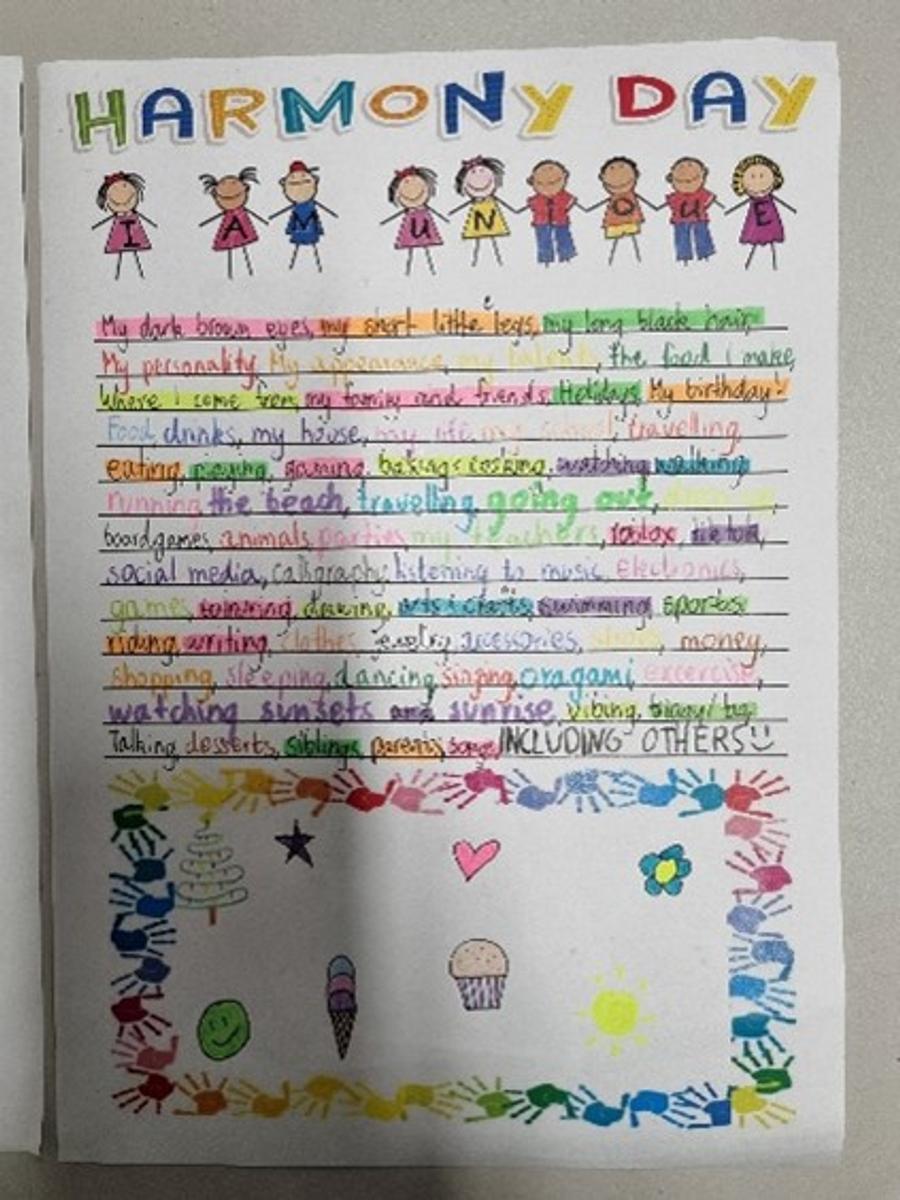 HARMONY DAY
I AM UNiQUE
My dark brown eyes, my short little legs, my long black hair,
My personality, My appearance, my talents, the food i make,
Where i come from, my family and friends, Holidays, My birthday!
Food, drinks, my house, my life, my school, travelling,
eating, playing, gaming, baking & cooking, watching, walking
running, the beach, travelling, going out,
boardgames, animals, parties, my teachers, roblox, tiktok,
social media, caligraphy, listening to music, Electronics,
games, drawing, arts & crafts, swimming, sports,
riding, writing, clothes, jewelry, accessories, shoes, money,
shopping, sleeping, dancing, singing, oragami, excercise,
watching sunsets and sunrise, vibing,
Talking, desserts, siblings, parents, songs, INCLUDING OTHERS